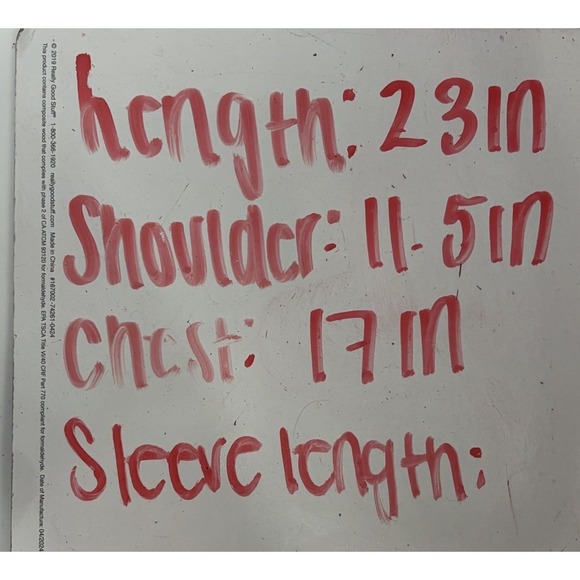 Length: 23in
Shoulder: 11.5in
Chest: 17in
Sleeve length:
© 2019 Really Good Stuff® 1-800-366-1920 reallygoodstuff.com Made in China #167002 -74261-0424
This product contains composite wood that complies with phase 2 of CA ATCM 93120 for formaldehyde. EPA TSCA Title VI/40 CRF Part 770 compliant for formaldehyde. Date of Manufacture: 04/2024